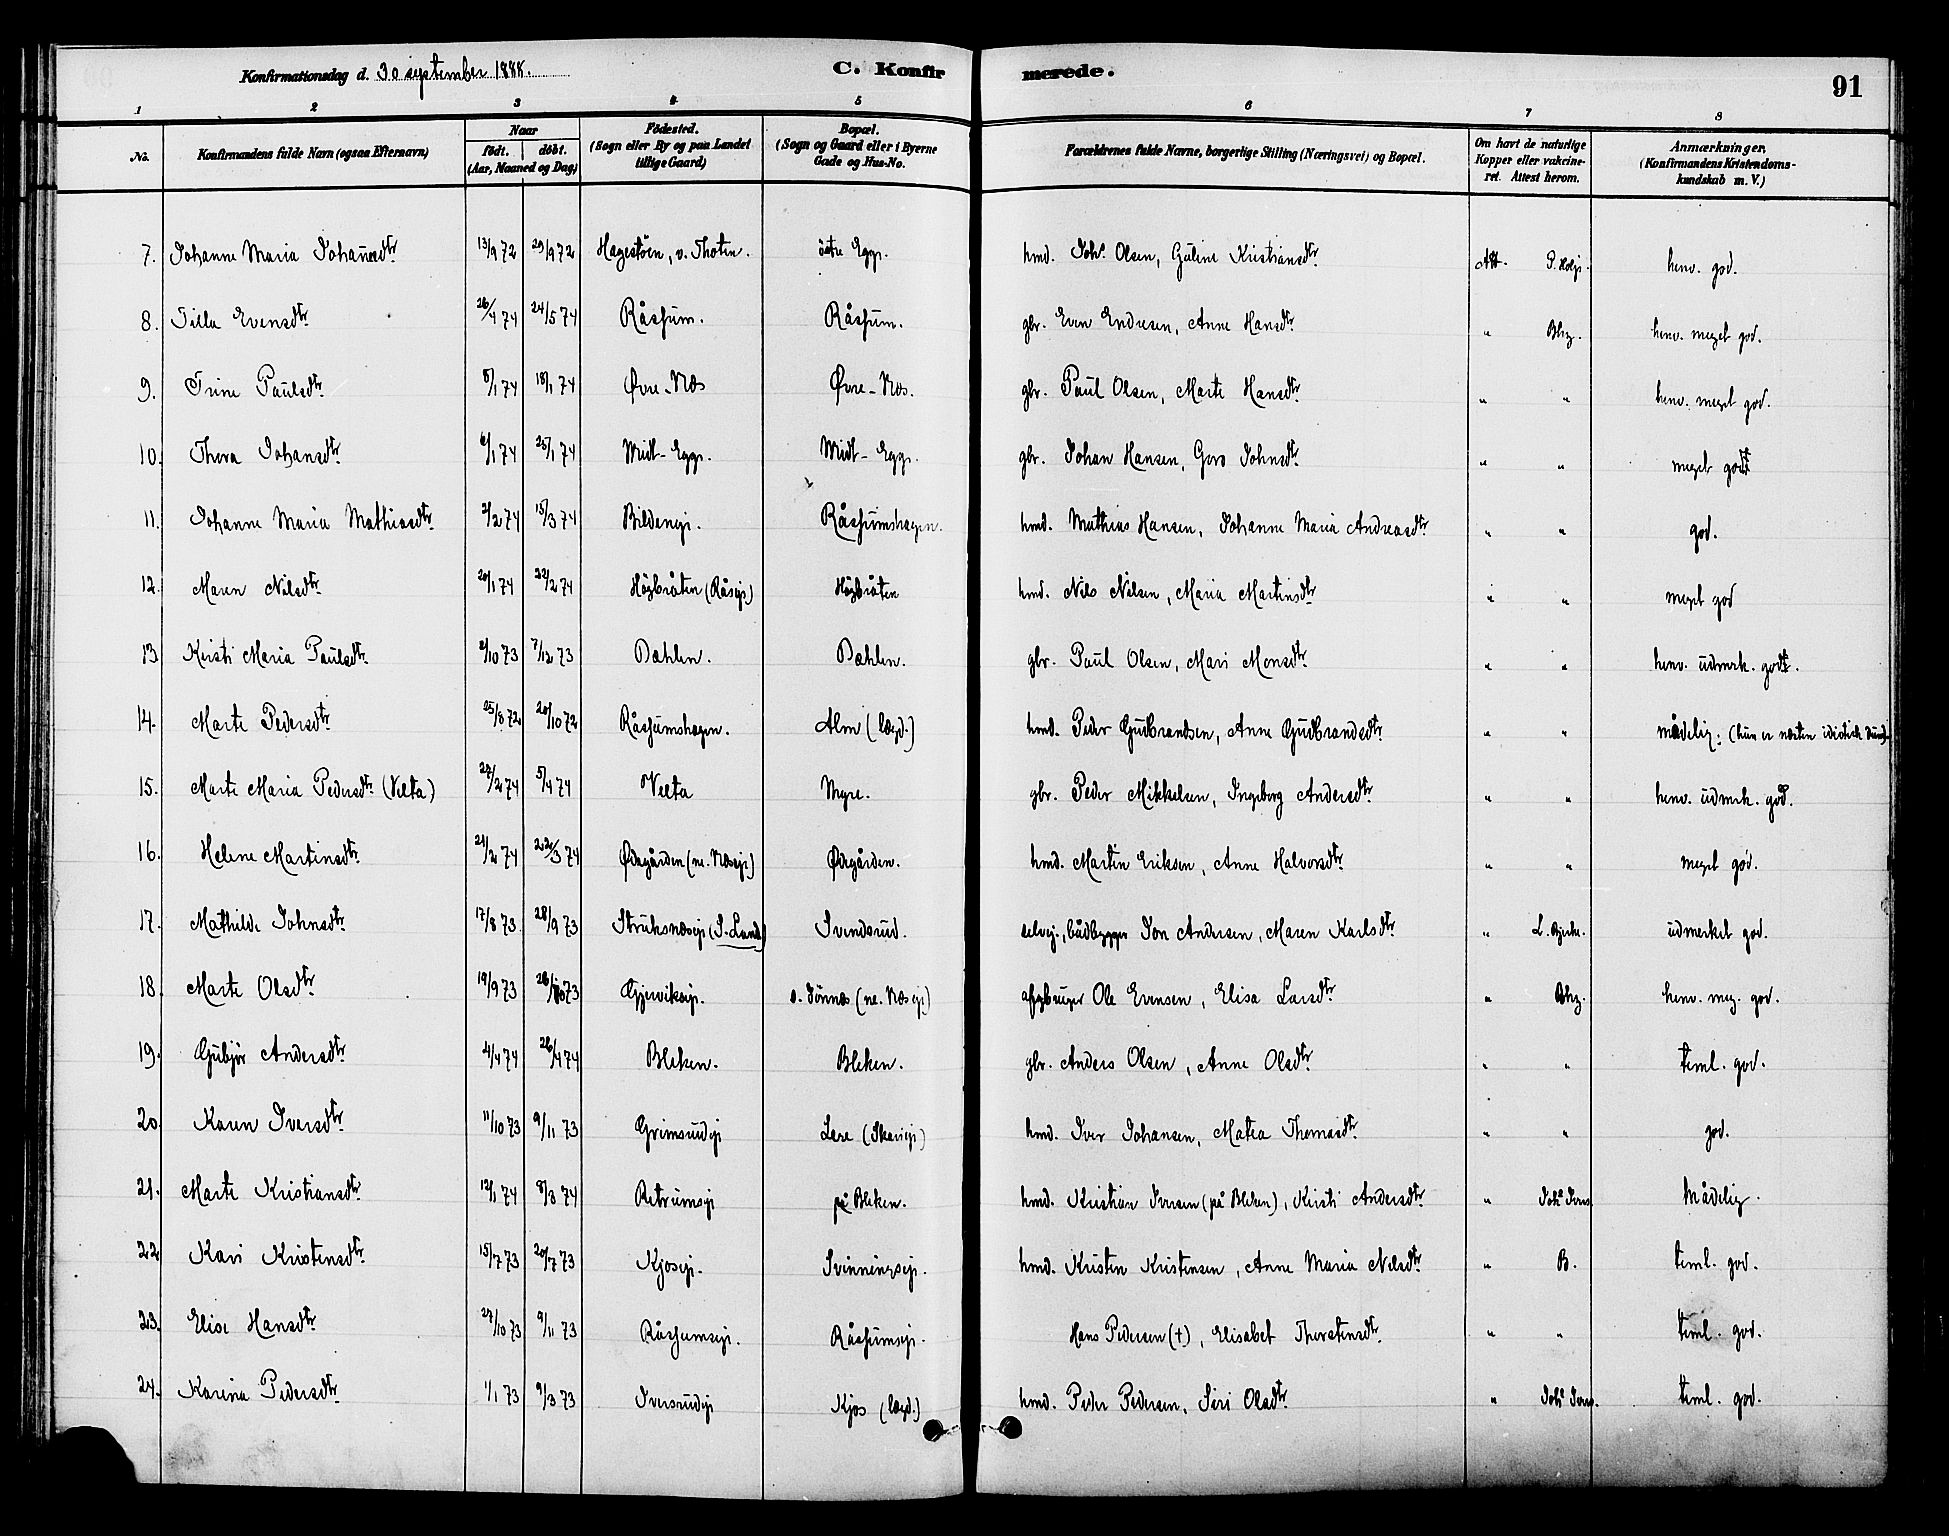 Konfirmationsdag d. 30 september 1888. C. Konfirmerede. 91
1 2 3 4 5 6 7 8
No. Konfirmandens fulde Navn (ogsaa Efternavn) Naar födt. döbt. (Aar, Maaned og Dag) Födested. (Sogn eller By og paa Landet tillige Gaard) Bopæl. (Sogn og Gaard eller i Byerne Gade og Hus-No. Forældrenes fulde Navne, borgerlige Stilling (Næringsvei) og Bopæl. Om havt de naturlige Kopper eller vakcineret. Attest herom. Anmærkninger. (Konfirmandens Kristendomskundskab m. V.)
7. Johanne Maria Johannesdtr 13/9 72 29/9 72 Hagestöen, v. Thoten. östre Egge. hmd. Johs Olsen, Guline Kristiansdtr Att. henv. god.
8. Evensdtr 26/4 74 24/5 74 Råssum. Råssum. gbr. Even Endresen, Anne Hansdtr " Bhg. henv. meget god.
9. Trine Paulsdtr 18/1 74 Øvre-Næs Øvre-Næs. gbr. Paul Olsen, Marte Hansdtr " " henv. meget god.
10. Thora Johansdtr 6/1 74 25/1 74 Midt-Egge. Midt-Egge. gbr. Johan Hansen, Goro Johnsdtr " " meget godt
11. Johanne Maria Mathiasdtr 2/2 74 15/3 74 Bildenejr. Råssumshagen. hmd. Mathias Hansen, Johanne Maria Andreasdtr " " god.
12. Maren Nilsdtr 20/1 74 22/2 74 Högbråten (Råsejr) Högbråten hmd. Nils Nilsen, Maria Martinsdtr " " meget god
13. Kirsti Maria Paulsdtr 2/10 73 7/12 73 Dæhlen. Dæhlen. gbr. Paul Olsen, Mari Monsdtr " " henv. udmrk. godt.
14. Marte Pedersdtr 25/8 72 20/10 72 Råssumshagen. Alm (lægd.) hmd. Peder Gudbrandsen, Anne Gudbrandsdtr " " mådelig. (hun er næsten idiotisk
15. Marte Maria Pedersdtr (Velta) 5/4 74 Velta Myre. gbr. Peder Mikkelsen, Ingeborg Andersdtr " " henv. udmrk. god.
16. Helene Martinsdtr 21/2 74 22/3 74 Ødegården (ne. Næsejr) Ødegården. hmd. Martin Eriksen, Anne Halvorsdtr " " meget god.
17. Mathilde Johnsdtr 17/8 73 28/9 73 Struksnæsejr (S. Land) Svendsrud. selvej., bådbygger Jon Andersen, Maren Karlsdtr " L. Bjerke. udmerket god.
18. Marte Olsdtr 19/9 73 26/10 73 Gjerviksejr. (ne. Næsejr) Ole Evensen, Elisa Larsdtr " Bhg. henv. meg. god.
19. Gubjör Andersdtr 4/4 74 26/4 74 Bleken. Bleken. gbr. Anders Olsen, Anne Olsdtr " " teml. god.
20. Karen Iversdtr 11/10 73 9/11 73 Grimsrudejr hmd. Iver Johansen, Matea Thomasdtr " " god.
21. Marte Kristiansdtr 12/1 74 8/3 74 Retrumsejr på Bleken. hmd. Kristian Iversen (på Bleken), Kirsti Andersdtr " Johs Ivers. Mådelig.
22. Kari Kristensdtr 15/7 73 20/7 73 Kjosejr. Svinningsejr. hmd. Kristen Kristensen, Anne Maria Nilsdtr " B. teml. god.
23. Elise Hansdtr 27/10 73 9/11 73 Råssumsejr. Råssumsejr. Hans Pedersen (†), Elisabet Thorstensdtr " " teml. god.
24. Karina Pedersdtr 1/1 73 9/3 73 Iversrudejr Kjos (lægd.) hmd. Peder Pedersen, Siri Olsdtr " Johs Ivers. teml. god.